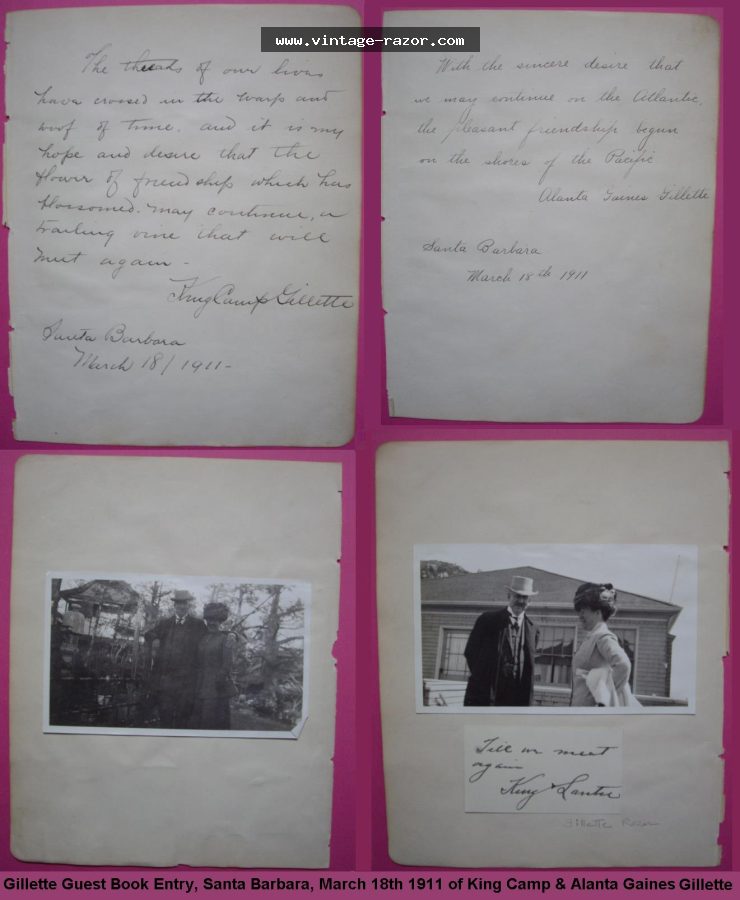 www.vintage-razor.com
The threads of our lives
have crossed in the warp and
woof of time. and it is my
hope and desire that the
flower of friendship which has
blossomed. may continue, a
trailing vine that will
meet again -
King Camp Gillette
Santa Barbara
March 18/1911-
With the sincere desire that
we may continue on the Atlantic,
the pleasant friendship begun
on the shores of the Pacific
Alanta Gaines Gillette
Santa Barbara
March 18th 1911
Till we meet
again
King
Gillette Razor
Gillette Guest Book Entry, Santa Barbara, March 18th 1911 of King Camp & Alanta Gaines Gillette